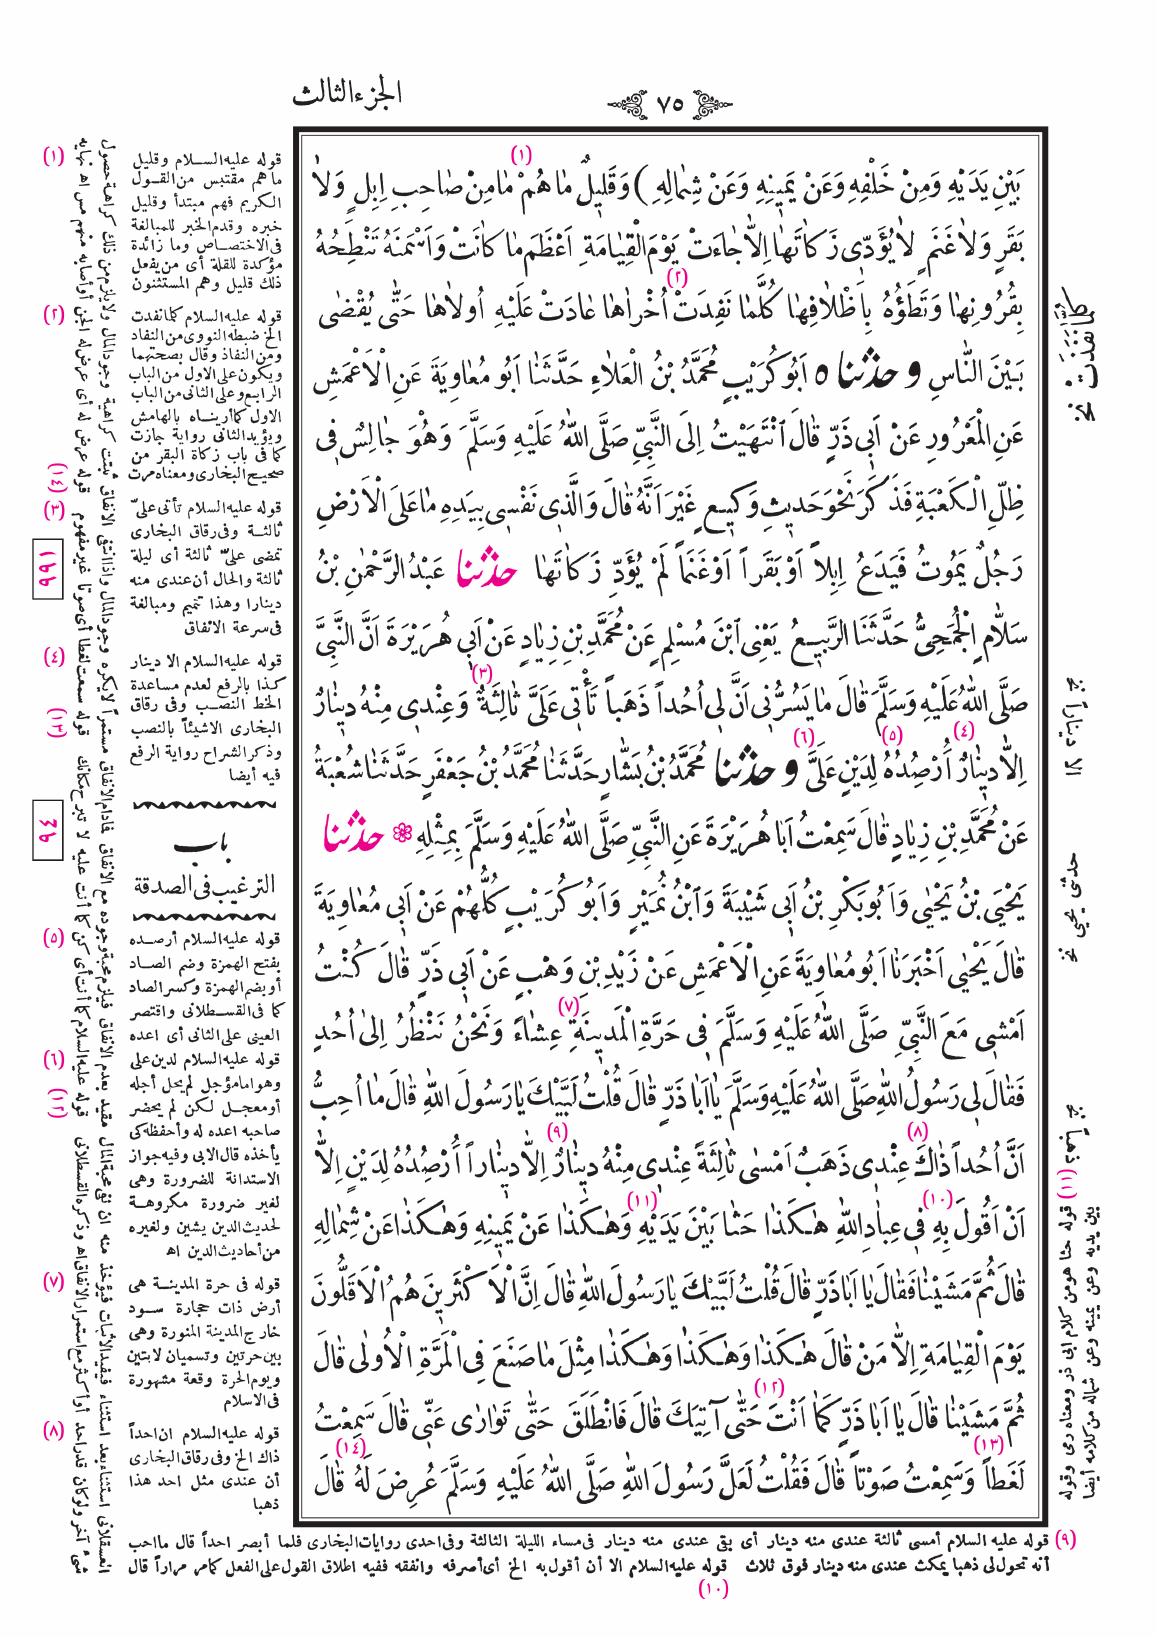 الجزء الثالث
٧٥
(١)
بَيْنِ يَدَيْهِ وَمِنْ خَلْفِهِ وَعَنْ يَمِينِهِ وَعَنْ شِمَالِهِ ) وَقَلِيلٌ مَا هُمْ مَا مِنْ صَاحِبِ اِبِلٍ وَلَا
بَقَرٍ وَلَا غَنَمٍ لَا يُؤَدِّى زَكَاتَهَا اِلَّا جَاءَتْ يَوْمَ الْقِيَامَةِ اَعْظَمَ مَا كَانَتْ وَاَسْمَنَهُ تَنْطِحُهُ
(٢)
بِقُرُونِهَا وَتَطَؤُهُ بِاَظْلَافِهَا كُلَّمَا نَفِدَتْ اُخْرَاهَا عَادَتْ عَلَيْهِ اُولَاهَا حَتَّى يُقْضٰى
بَيْنَ النَّاسِ و حدثنا ٥ اَبُو كُرَيْبٍ مُحَمَّدُ بْنُ الْعَلَاءِ حَدَّثَنَا اَبُو مُعَاوِيَةَ عَنِ الْاَعْمَشِ
عَنِ الْمَعْرُورِ عَنْ اَبِى ذَرٍّ قَالَ انْتَهَيْتُ اِلَى النَّبِىِّ صَلَّى اللّٰهُ عَلَيْهِ وَسَلَّمَ وَهُوَ جَالِسٌ فِى
ظِلِّ الْكَعْبَةِ فَذَكَرَ نَحْوَ حَدِيثِ وَكِيعٍ غَيْرَ اَنَّهُ قَالَ وَالَّذِى نَفْسِى بِيَدِهِ مَا عَلَى الْاَرْضِ
رَجُلٌ يَمُوتُ فَيَدَعُ اِبِلاً اَوْ بَقَراً اَوْ غَنَماً لَمْ يُؤَدِّ زَكَاتَهَا حدثنا عَبْدُ الرَّحْمٰنِ بْنُ
سَلَّامٍ الْجُمَحِىُّ حَدَّثَنَا الرَّبِيعُ يَعْنِى ابْنَ مُسْلِمٍ عَنْ مُحَمَّدِ بْنِ زِيَادٍ عَنْ اَبِى هُرَيْرَةَ اَنَّ النَّبِىَّ
(٣)
صَلَّى اللّٰهُ عَلَيْهِ وَسَلَّمَ قَالَ مَا يَسُرُّنِى اَنَّ لِى اُحُداً ذَهَباً تَأْتِى عَلَىَّ ثَالِثَةٌ وَعِنْدِى مِنْهُ دِينَارٌ
(٤) (٥) (٦)
اِلَّا دِينَارٌ اُرْصِدُهُ لِدَيْنٍ عَلَىَّ و حدثنا مُحَمَّدُ بْنُ بَشَّارٍ حَدَّثَنَا مُحَمَّدُ بْنُ جَعْفَرٍ حَدَّثَنَا شُعْبَةُ
عَنْ مُحَمَّدِ بْنِ زِيَادٍ قَالَ سَمِعْتُ اَبَا هُرَيْرَةَ عَنِ النَّبِىِّ صَلَّى اللّٰهُ عَلَيْهِ وَسَلَّمَ بِمِثْلِهِ حدثنا
يَحْيَى بْنُ يَحْيٰى وَاَبُو بَكْرِ بْنُ اَبِى شَيْبَةَ وَابْنُ نُمَيْرٍ وَاَبُو كُرَيْبٍ كُلُّهُمْ عَنْ اَبِى مُعَاوِيَةَ
قَالَ يَحْيٰى اَخْبَرَنَا اَبُو مُعَاوِيَةَ عَنِ الْاَعْمَشِ عَنْ زَيْدِ بْنِ وَهْبٍ عَنْ اَبِى ذَرٍّ قَالَ كُنْتُ
(٧)
اَمْشِى مَعَ النَّبِىِّ صَلَّى اللّٰهُ عَلَيْهِ وَسَلَّمَ فِى حَرَّةِ الْمَدِينَةِ عِشَاءً وَنَحْنُ نَنْظُرُ اِلٰى اُحُدٍ
فَقَالَ لِى رَسُولُ اللّٰهِ صَلَّى اللّٰهُ عَلَيْهِ وَسَلَّمَ يَا اَبَا ذَرٍّ قَالَ قُلْتُ لَبَّيْكَ يَا رَسُولَ اللّٰهِ قَالَ مَا اُحِبُّ
(٨) (٩)
اَنَّ اُحُداً ذَاكَ عِنْدِى ذَهَبٌ اَمْسٰى ثَالِثَةً عِنْدِى مِنْهُ دِينَارٌ اِلَّا دِينَاراً اُرْصِدُهُ لِدَيْنٍ اِلَّا
(١٠) (١١)
اَنْ اَقُولَ بِهِ فِى عِبَادِ اللّٰهِ هٰكَذَا حَثَا بَيْنَ يَدَيْهِ وَهٰكَذَا عَنْ يَمِينِهِ وَهٰكَذَا عَنْ شِمَالِهِ
قَالَ ثُمَّ مَشَيْنَا فَقَالَ يَا اَبَا ذَرٍّ قَالَ قُلْتُ لَبَّيْكَ يَا رَسُولَ اللّٰهِ قَالَ اِنَّ الْاَكْثَرِينَ هُمُ الْاَقَلُّونَ
يَوْمَ الْقِيَامَةِ اِلَّا مَنْ قَالَ هٰكَذَا وَهٰكَذَا وَهٰكَذَا مِثْلَ مَا صَنَعَ فِى الْمَرَّةِ الْاُولٰى قَالَ
(١٢)
ثُمَّ مَشَيْنَا قَالَ يَا اَبَا ذَرٍّ كَمَا اَنْتَ حَتّٰى آتِيَكَ قَالَ فَانْطَلَقَ حَتّٰى تَوَارٰى عَنِّى قَالَ سَمِعْتُ
(١٣) (١٤)
لَغَطاً وَسَمِعْتُ صَوْتاً قَالَ فَقُلْتُ لَعَلَّ رَسُولَ اللّٰهِ صَلَّى اللّٰهُ عَلَيْهِ وَسَلَّمَ عُرِضَ لَهُ قَالَ
كلما نفذت نخ
الا ديناراً نخ
حدثنى يحيى نخ
ذهباً نخ
(١١) قوله حثا هو من كلام ابى ذر ومعناه رمى وقوله
بين يديه وعن يمينه وعن شماله من كلامه أيضا
(١) قوله عليه السلام وقليل
ما هم مقتبس من القول
الكريم فهم مبتدأ وقليل
خبره وقدم الخبر للمبالغة
فى الاختصاص وما زائدة
مؤكدة للقلة أى من يفعل
ذلك قليل وهم المستثنون
(٢) قوله عليه السلام كلما نفدت
الخ ضبطه النووى من النفاد
ومن النفاذ وقال بصحتهما
ويكون على الاول من الباب
الرابع وعلى الثانى من الباب
الاول كما أريناه بالهامش
ويؤيد الثانى رواية جازت
كما فى باب زكاة البقر من
صحيح البخارى ومعناه مرت
(٣) قوله عليه السلام تأتى علىّ
ثالثة وفى رقاق البخارى
تمضى علىّ ثالثة أى ليلة
ثالثة والحال أن عندى منه
دينارا وهذا تتميم ومبالغة
فى سرعة الانفاق
(٤) قوله عليه السلام الا دينار
كذا بالرفع لعدم مساعدة
الخط النصب وفى رقاق
البخارى الا شيئاً بالنصب
وذكر الشراح رواية الرفع
فيه أيضا
باب
الترغيب فى الصدقة
(٥) قوله عليه السلام أرصده
بفتح الهمزة وضم الصاد
أو بضم الهمزة وكسر الصاد
كما فى القسطلانى واقتصر
العينى على الثانى أى اعده
(٦) قوله عليه السلام لدين على
وهو اما مؤجل لم يحل أجله
أو معجل لكن لم يحضر
صاحبه اعده له وأحفظه كى
يأخذه قال الابى وفيه جواز
الاستدانة للضرورة وهى
لغير ضرورة مكروهة
لحديث الدين يشين ولغيره
من أحاديث الدين اه
(٧) قوله فى حرة المدينة هى
أرض ذات حجارة سود
خارج المدينة المنورة وهى
بين حرتين وتسميان لابتين
ويوم الحرة وقعة مشهورة
فى الاسلام
(٨) قوله عليه السلام ان احداً
ذاك الخ وفى رقاق البخارى
أن عندى مثل احد هذا
ذهبا
(١٤)
(١٣)
(١٢)
٩٩١
٩٤
(٩) قوله عليه السلام أمسى ثالثة عندى منه دينار أى بقى عندى منه دينار فى مساء الليلة الثالثة وفى احدى روايات البخارى فلما أبصر احداً قال ما احب
أنه تحول لى ذهبا يمكث عندى منه دينار فوق ثلاث قوله عليه السلام الا أن أقول به الخ أى أصرفه وانفقه ففيه اطلاق القول على الفعل كما مر مراراً قال
(١٠)